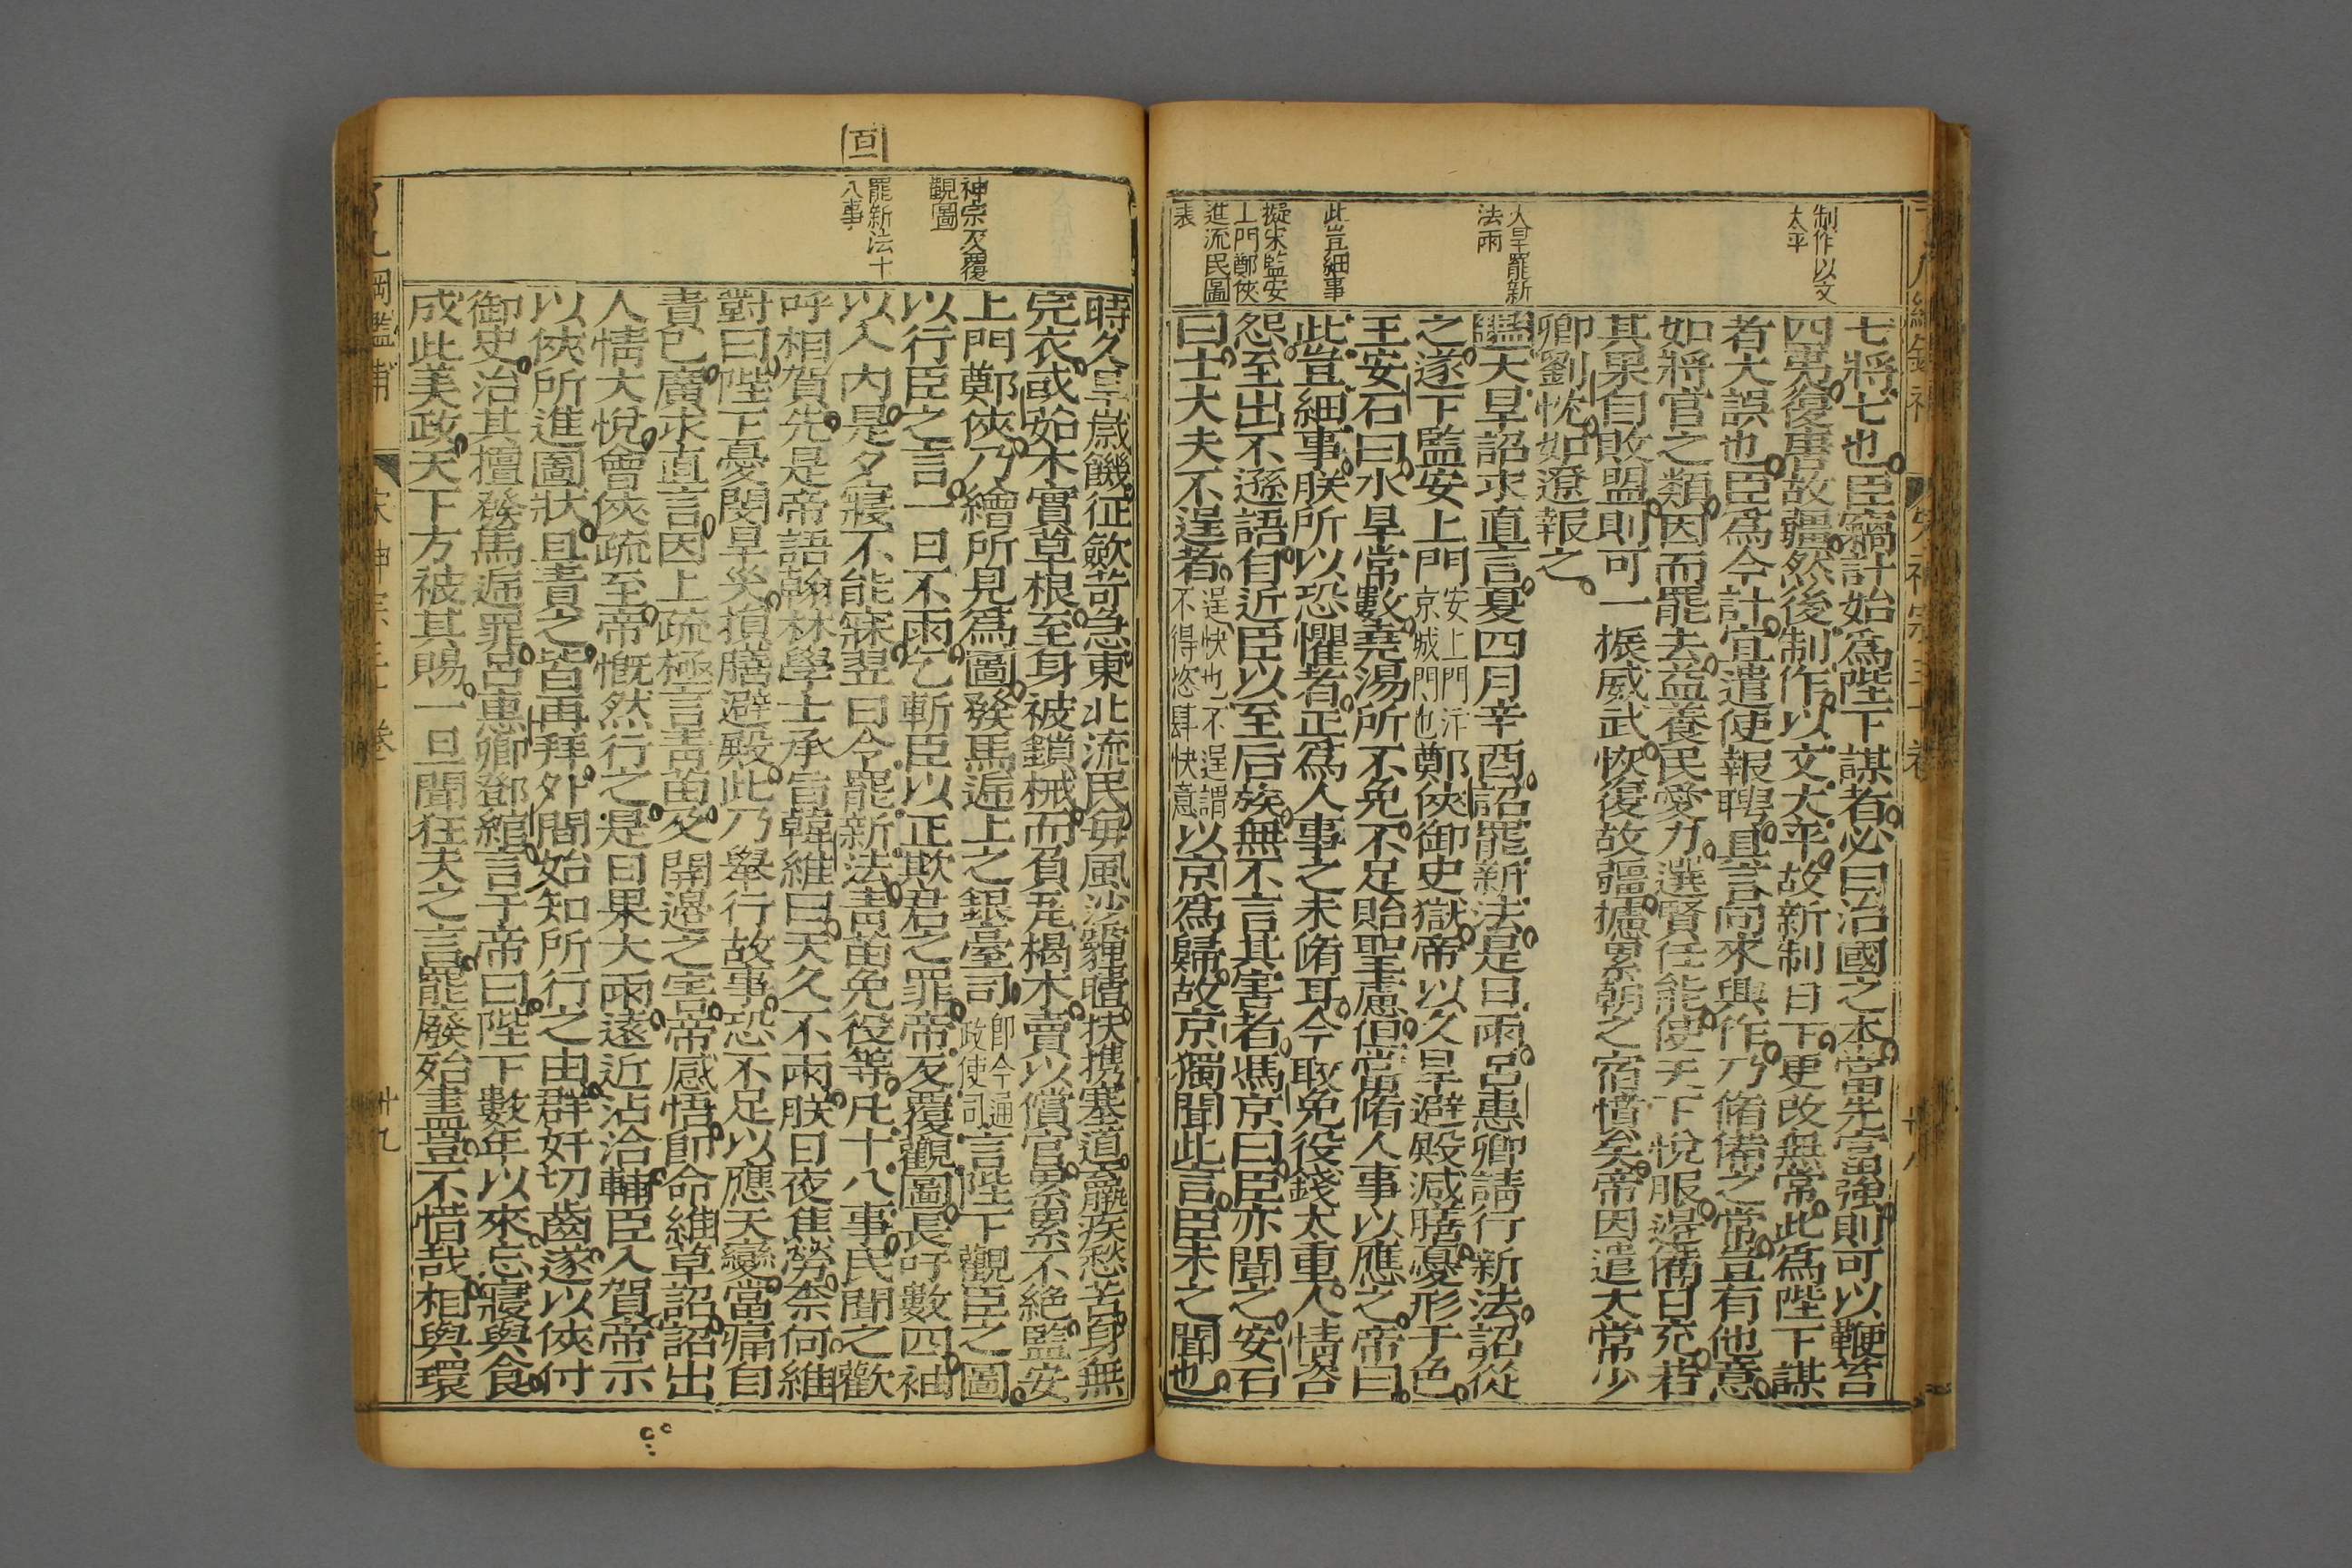 制作以文
太平
大旱罷新
法雨
此豈細事
擬宋監安
上門鄭俠
進流民圖
表
七將七也臣竊計始爲陛下謀者必曰治國之本當先富強則可以鞭笞
四夷復唐故疆然後制作以文太平故新制日下更改無常此爲陛下謀
者大誤也臣爲今計宜遣使報聘且言向來興作乃脩備之常豈有他意
如將官之類因而罷去益養民愛力選賢任能使天下悅服邊備日充若
其果自敗盟則可一振威武恢復故疆攄累朝之宿憤矣帝因遣太常少
卿劉忱如遼報之
鑑大旱詔求直言夏四月辛酉詔罷新法是日雨呂惠卿請行新法詔從
之遂下監安上門安上門汴京城門也鄭俠御史獄帝以久旱避殿減膳憂形于色
王安石曰水旱常數堯湯所不免不足貽聖慮但當脩人事以應之帝曰
此豈細事朕所以恐懼者正爲人事之未脩耳今取免役錢太重人情咨
怨至出不遜語自近臣以至后族無不言其害者馮京曰臣亦聞之安石
曰士大夫不逞者逞快也不逞謂不得恣肆快意以京爲歸故京獨聞此言臣未之聞也
神宗反覆
觀圖
罷新法十
八事
時久旱歲饑征歛苛急東北流民毎風沙霾曀扶携塞道羸疾愁苦身無
完衣或茹木實草根至身被鎖械而負瓦楬木賣以償官累累不絶監安
上門鄭俠乃繪所見爲圖發馬遞上之銀臺司卽今通政使司言陛下觀臣之圖
以行臣之言一日不雨乞斬臣以正欺君之罪帝反覆觀圖長吁數四袖
以入内是夕寢不能寐翌日令罷新法靑苗免役等凡十八事民聞之歡
呼相賀先是帝語翰林學士承旨韓維曰天久不雨朕日夜焦勞柰何維
對曰陛下憂閔旱災損膳避殿此乃舉行故事恐不足以應天變當痛自
責已廣求直言因上疏極言靑苗及開邊之害帝感悟卽命維草詔詔出
人情大悅會俠疏至帝慨然行之是日果大雨遠近沾洽輔臣入賀帝示
以俠所進圖狀且責之皆再拜外間始知所行之由群奸切齒遂以俠付
御史治其擅發馬遞罪呂惠卿鄧綰言于帝曰陛下數年以來忘寢與食
成此美政天下方被其賜一旦聞狂夫之言罷廢殆盡豈不惜哉相與環
宋神宗三十卷
廿九